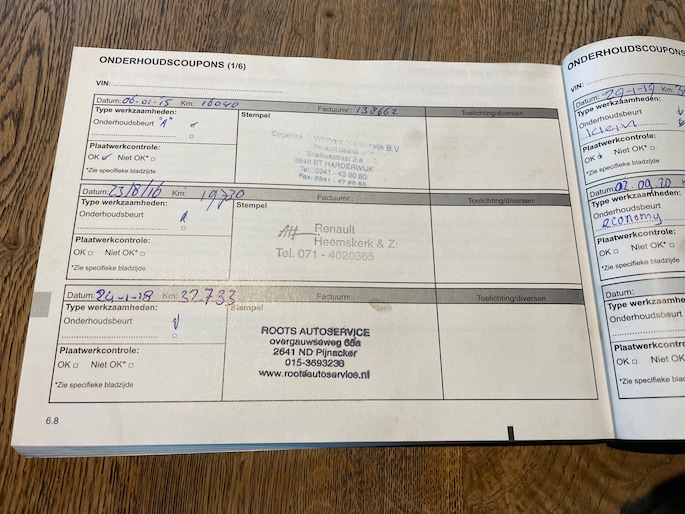 ONDERHOUDSCOUPONS (1/6)
VIN:
Datum: 06-01-15 Km: 16040 Factuurnr.: 138662
Type werkzaamheden: Stempel Toelichting/diversen
Onderhoudsbeurt "A"
Plaatwerkcontrole:
OK Niet OK*
*Zie specifieke bladzijde
B.V.
3846 BT HARDERWIJK
Tel.: 0341 -
Datum: 23/8/16 Km: Factuurnr.: Toelichting/diversen
Type werkzaamheden: Stempel
Onderhoudsbeurt
Plaatwerkcontrole:
OK Niet OK*
*Zie specifieke bladzijde
Renault
Heemskerk & Z
Tel. 071 - 4020365
Datum: 24-1-18 Km: 32733 Factuurnr.: Toelichting/diversen
Type werkzaamheden: Stempel
Onderhoudsbeurt
Plaatwerkcontrole:
OK Niet OK*
*Zie specifieke bladzijde
ROOTS AUTOSERVICE
overgauwseweg 65a
2641 ND Pijnacker
015-3693236
www.rootsautoservice.nl
6.8
ONDERHOUDSCOUPONS
VIN:
Datum: 29-1-19 Km:
Type werkzaamheden:
Onderhoudsbeurt
klein
Plaatwerkcontrole:
OK Niet OK*
*Zie specifieke bladzijde
Datum: 02.09.20
Type werkzaamheden:
Onderhoudsbeurt
economy
Plaatwerkcontrole:
OK Niet OK*
*Zie specifieke bladzijde
Datum:
Type werkzaamhe
Onderhoudsbeurt
Plaatwerkcontro
OK Niet OK
*Zie specifieke bladz